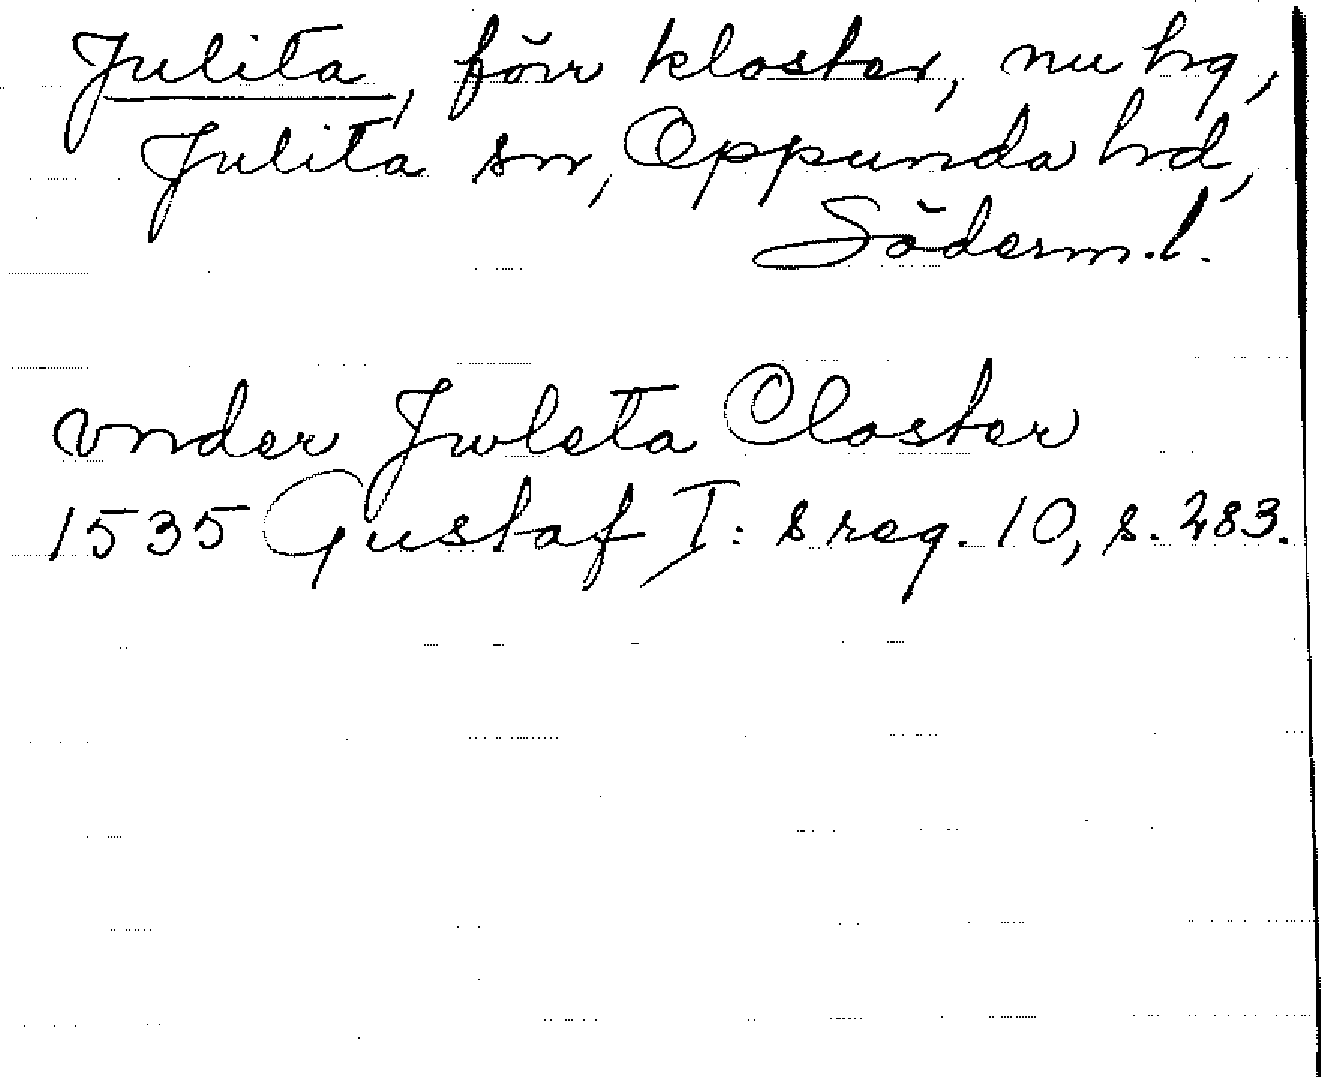 Julita, förr kloster, nu hg,
Julita sn, Oppunda hd,
Söderm.l.
vnder Jwleta Closter
1535 Gustaf I: s reg. 10, s. 283.